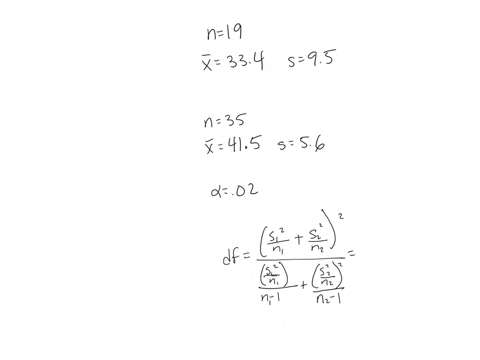 n=19
x̄=33.4 s=9.5
n=35
x̄=41.5 s=5.6
α=.02
df = (s₁²/n₁ + s₂²/n₂)² / ((s₁²/n₁)/(n₁-1) + (s₂²/n₂)²/(n₂-1)) =